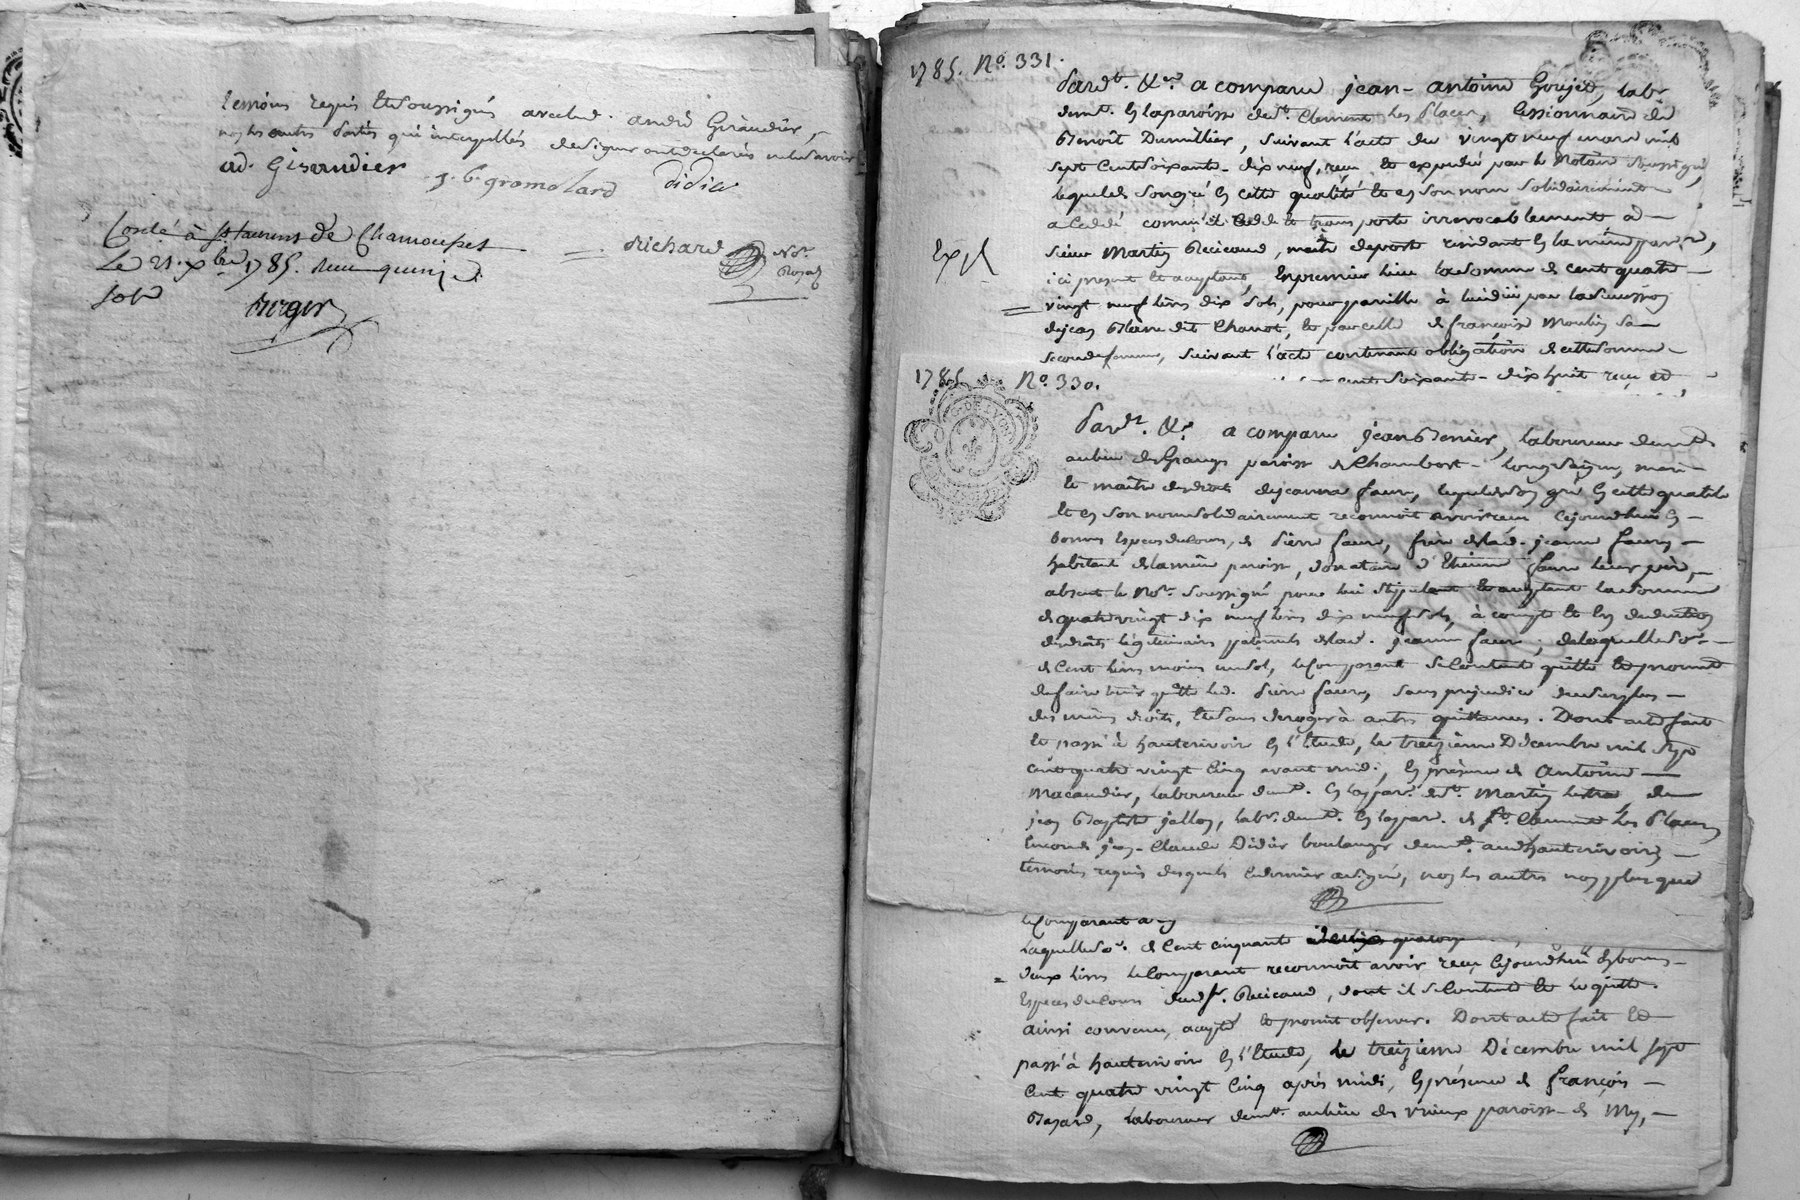 temoins requis et soussignés avec led. andré Giraudier,
non les autres parties qui interpellés de signer ont declarés ne le savoir
ad. Giraudier J. C. gromolard Didier
Controlé à St Laurent de Chamousset
Le 21. xbre 1785. Reçu quinze
sols
Berger
Richard Nore Royal
1785. No. 331.
Pardt. &a a comparu jean-antoine Goujet, labr
demt. en la paroisse de St. Clement les Places, Cessionnaire de
Benoît Dumillier, suivant l'acte du vingt neuf mars mil
sept Cent soixante-dix neuf, reçu et expedié par le Notaire soussigné,
lequel de son gré en cette qualité et en son nom solidairement
a Cedé comme il Cede et transporte irrevocablement à
sieur Martin Recicaud, maître de poste residant en la même paroisse,
ici present et acceptant, En premier lieu la somme de cent quatre
vingt neuf livres dix sols, pour pareille à lui düe par la succession
de jean Blanc dit Chanot, et par celle de françoise Moulin sa
seconde femme, suivant l'acte contenant obligation de cette somme
cent soixante-dix huit reçu et
Expé
1785 No. 330.
Pardt. &a a comparu jean Bernier, laboureur demt.
au lieu des Granges paroisse de Chambost-Longesaigne, mari
et maître des droits de jeanne faure, lequel de son gré en cette qualité
et en son nom solidairement reconnoit avoir reçu cejourd'hui en
bonnes Especes du cours, de Pierre faure, frere de lad. jeanne faure,
habitant de la même paroisse, donataire d'Etienne faure leur père,
absent le Nore. soussigné pour lui stipulant et acceptant la somme
de quatre vingt dix neuf livres dix neuf sols, à compte et en deduction
des droits legitimaires paternels de lad. jeanne faure, de laquelle so.
de Cent livres moins un sol, le Comparant se Contente quitte et promet
de faire tenir quitte led. Pierre faure, sans prejudice du surplus
des mêmes droits, et sans deroger à autres quittances. Dont acte fait
et passé à hauterivoire en l'Etude, le treizieme Décembre mil sept
cent quatre vingt Cinq avant midi, en présence de Antoine
Macaudier, laboureur demt. en la par. de St. Martin Lestra de
jean Baptiste jallon, labr. demt. en la par. de St. Clement les Places
Encore de jean-Claude Didier boulanger demt. aud. hauterivoire
temoins requis desquels ce dernier a signé, non les autres non plus que
le Comparant
laquelle so. de Cent cinquante
deux livres le Comparant reconnoît avoir reçu cejourd'hui en bonnes
Especes du Cours dud. sr. Recicaud, dont il se Contente et le quitte.
ainsi convenu, accepté et promit observer. Dont acte fait et
passé à hauterivoire en l'Etude, le treizieme Décembre mil sept
Cent quatre vingt Cinq après midi, en présence de françois
Bazard, laboureur demt. au lieu des vieux paroisse de My,